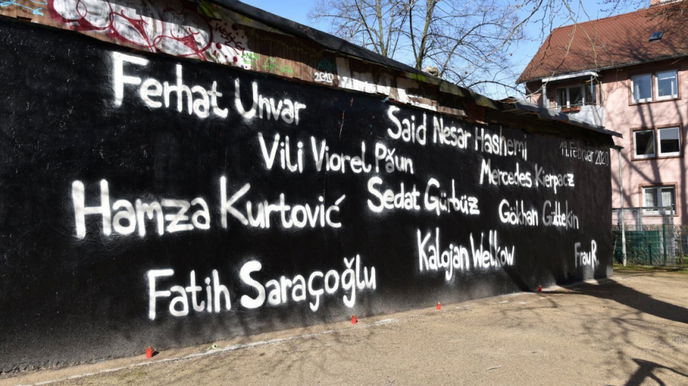 Ferhat Unvar
Said Nesar Hashemi
Vili Viorel Păun
Mercedes Kierpacz
Hamza Kurtović
Sedat Gürbüz
Gökhan Gültekin
Kalojan Welkow
Frau R.
Fatih Saraçoğlu